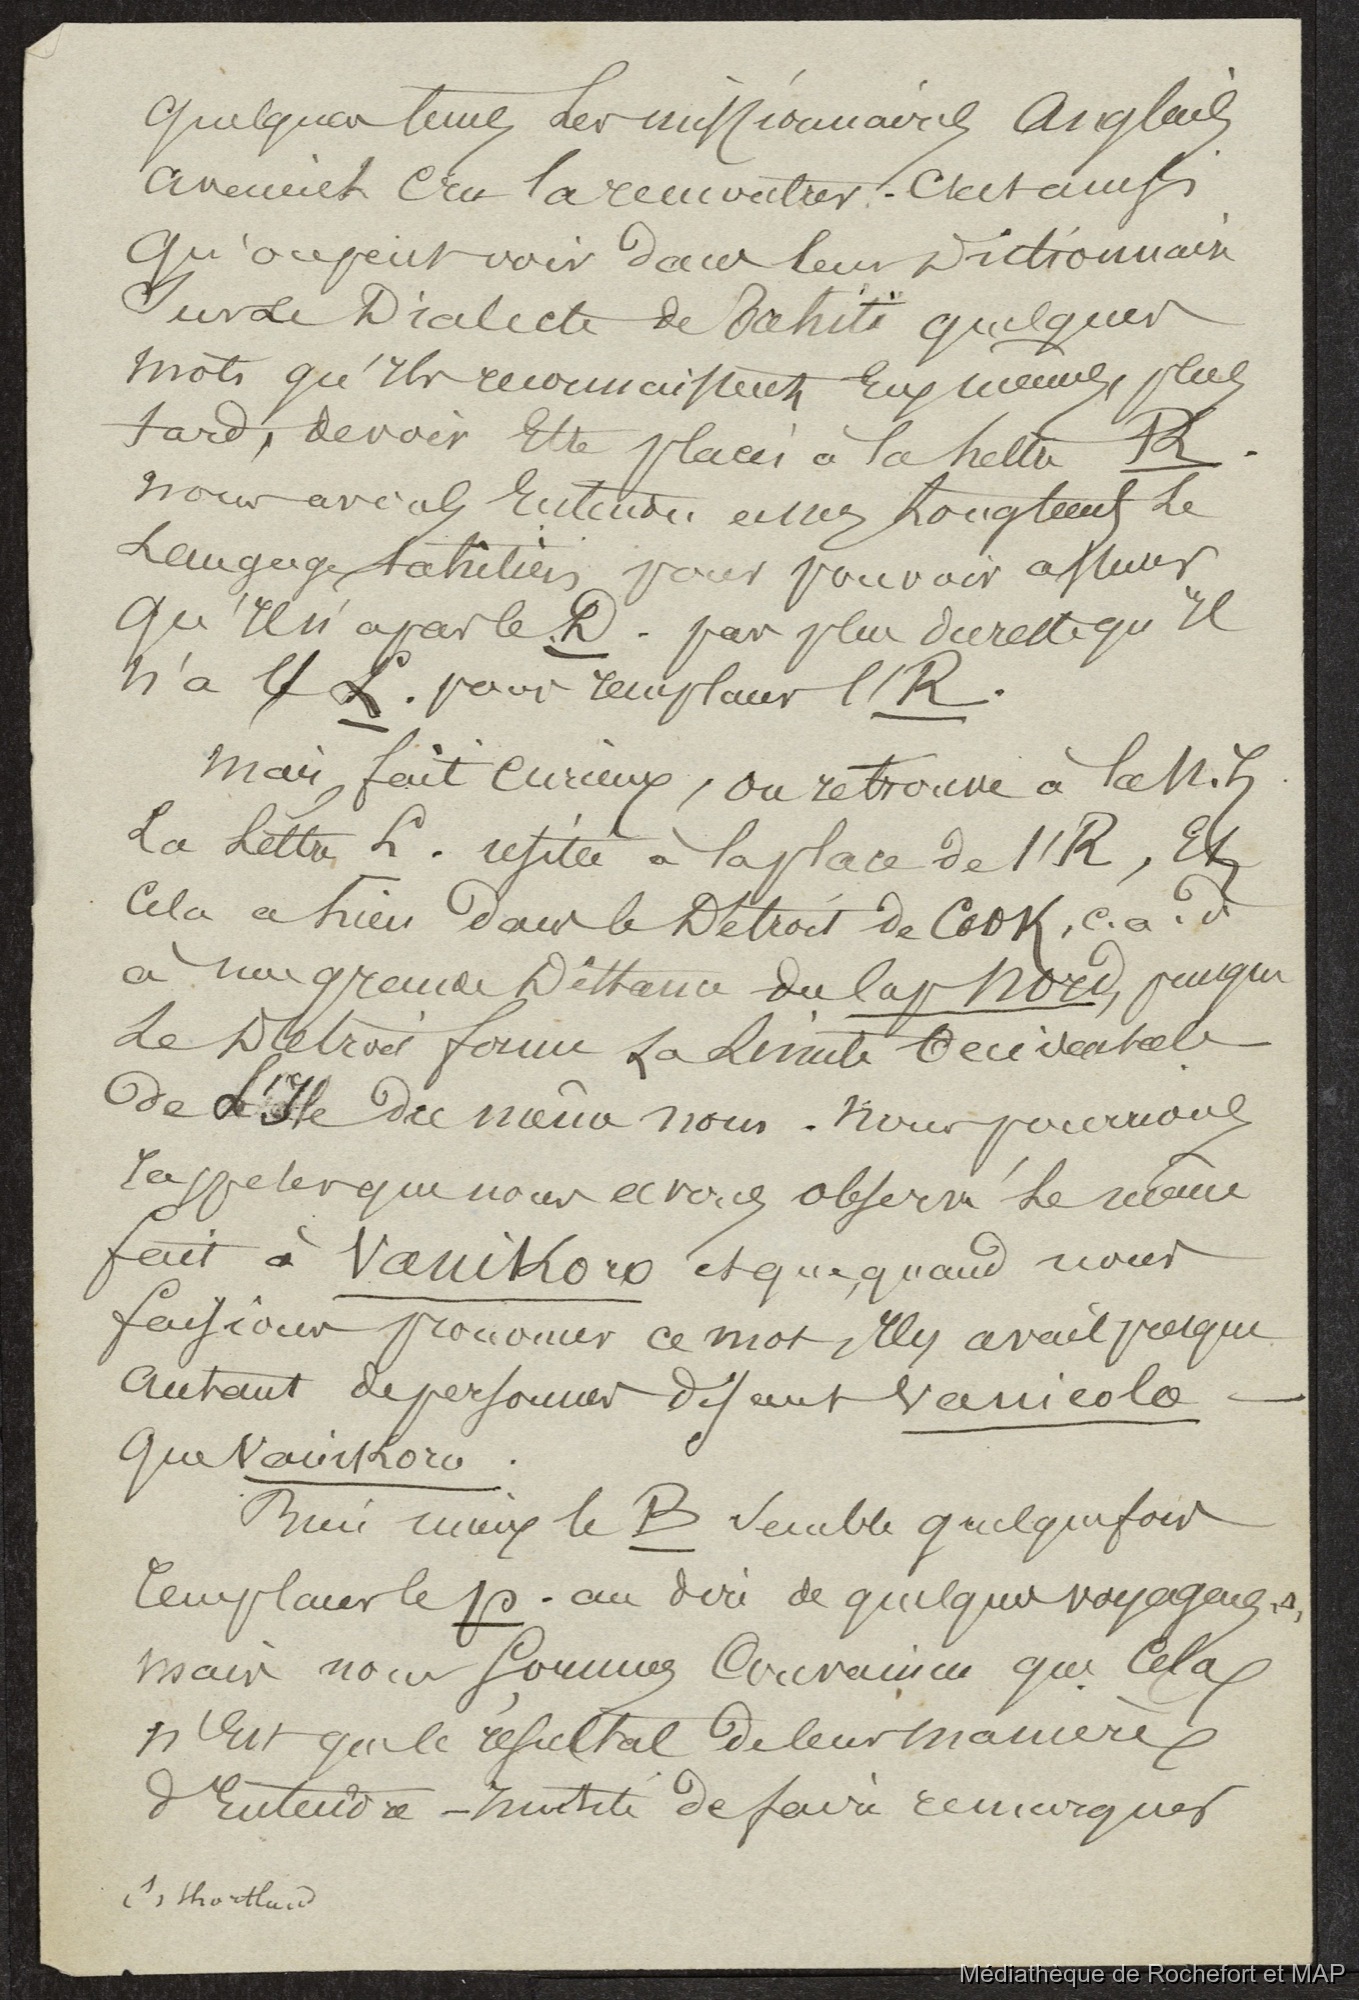 quelques tems les missionnaires Anglais
avaient cru la rencontrer. C'est ainsi
qu'on peut voir dans leur Dictionnaire
sur le Dialecte de Tahiti quelques
mots qu'Ils reconnaissent, Eux mêmes, plus
tard, devoir Etre placés à la lettre R.
nous avions Entendu assez Longtems Le
Langage tahitien pour pouvoir assurer
qu'Il n'a pas le D. pas plus du reste qu'Il
n'a l' L. pour remplacer l'R.
mais, fait curieux, on retrouve à la N. Z.
La Lettre L. usitée à la place de l'R, Et
cela a lieu dans le Détroit de Cook, c. a. d
à une grande Distance du Cap Nord, puisque
Le Détroit forme La Limite Occidentale
de L'Ile du même nom. Nous pourrions
rappeler que nous avons observé Le même
fait à Vanikoro et que, quand nous
faisions prononcer ce mot, Il y avait presque
autant de personnes disant Vanicolo
que Vanikoro.
Bien mieux le B semble quelquefois
remplacer le p. au dire de quelques voyageurs (1),
mais nous sommes Convaincu que Cela
n'Est que le résultat de leur manière
d'Entendre - Inutile de faire remarquer
(1) Shortland
Médiathèque de Rochefort et MAP